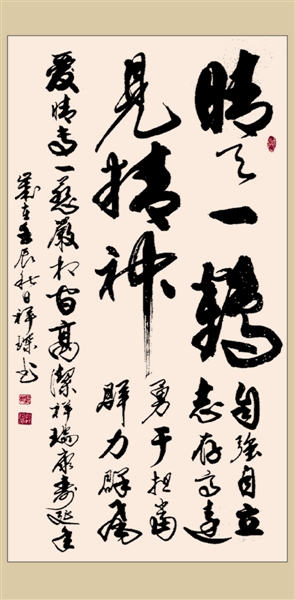 晴天一鶴
自強自立
志存高遠
見精神
勇于担當
群力群
愛情專一慈嚴相高潔祥瑞康壽延年
歲在壬辰秋日祥书